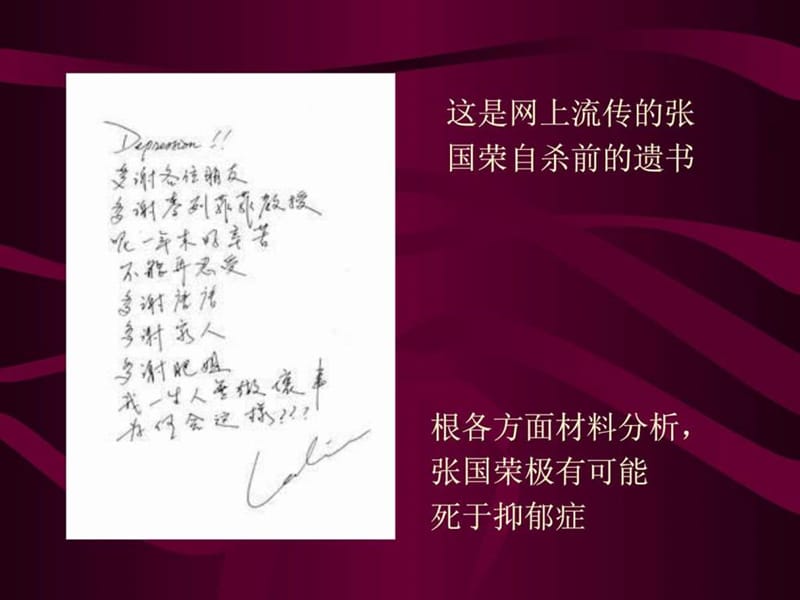 Depression!!
多谢各位朋友
多谢麥列菲菲教授
呢一年来好辛苦
不能再忍受
多谢唐唐
多谢家人
多谢肥姐
我一生人無做壞事
為何会这樣???
Leslie
这是网上流传的张
国荣自杀前的遗书
根各方面材料分析，
张国荣极有可能
死于抑郁症